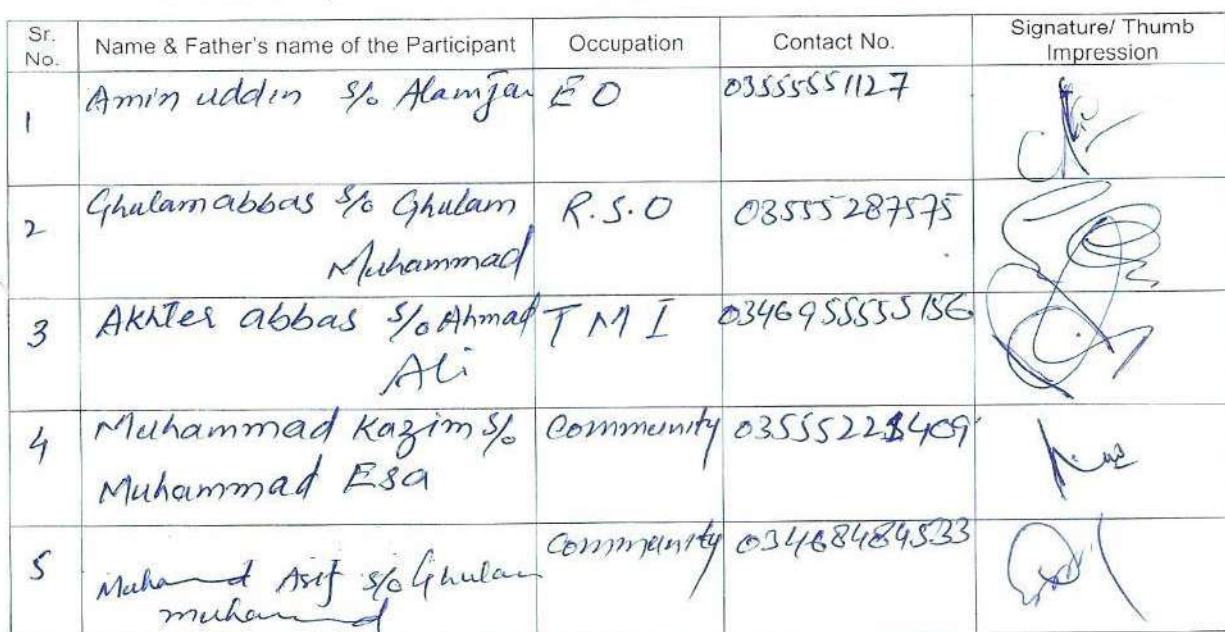 Sr. No. Name & Father's name of the Participant Occupation Contact No. Signature/ Thumb Impression
1 Amin uddin S/o Alamjan E O 03555551127
2 Ghulam abbas S/o Ghulam Muhammad R.S.O 03555287575
3 Akhter abbas S/o Ahmad Ali T M I 03469555555156
4 Muhammad Kazim S/o Muhammad Esa Community 03555221409
5 Muhammad Asif S/o Ghulam muhammad Community 03468484533